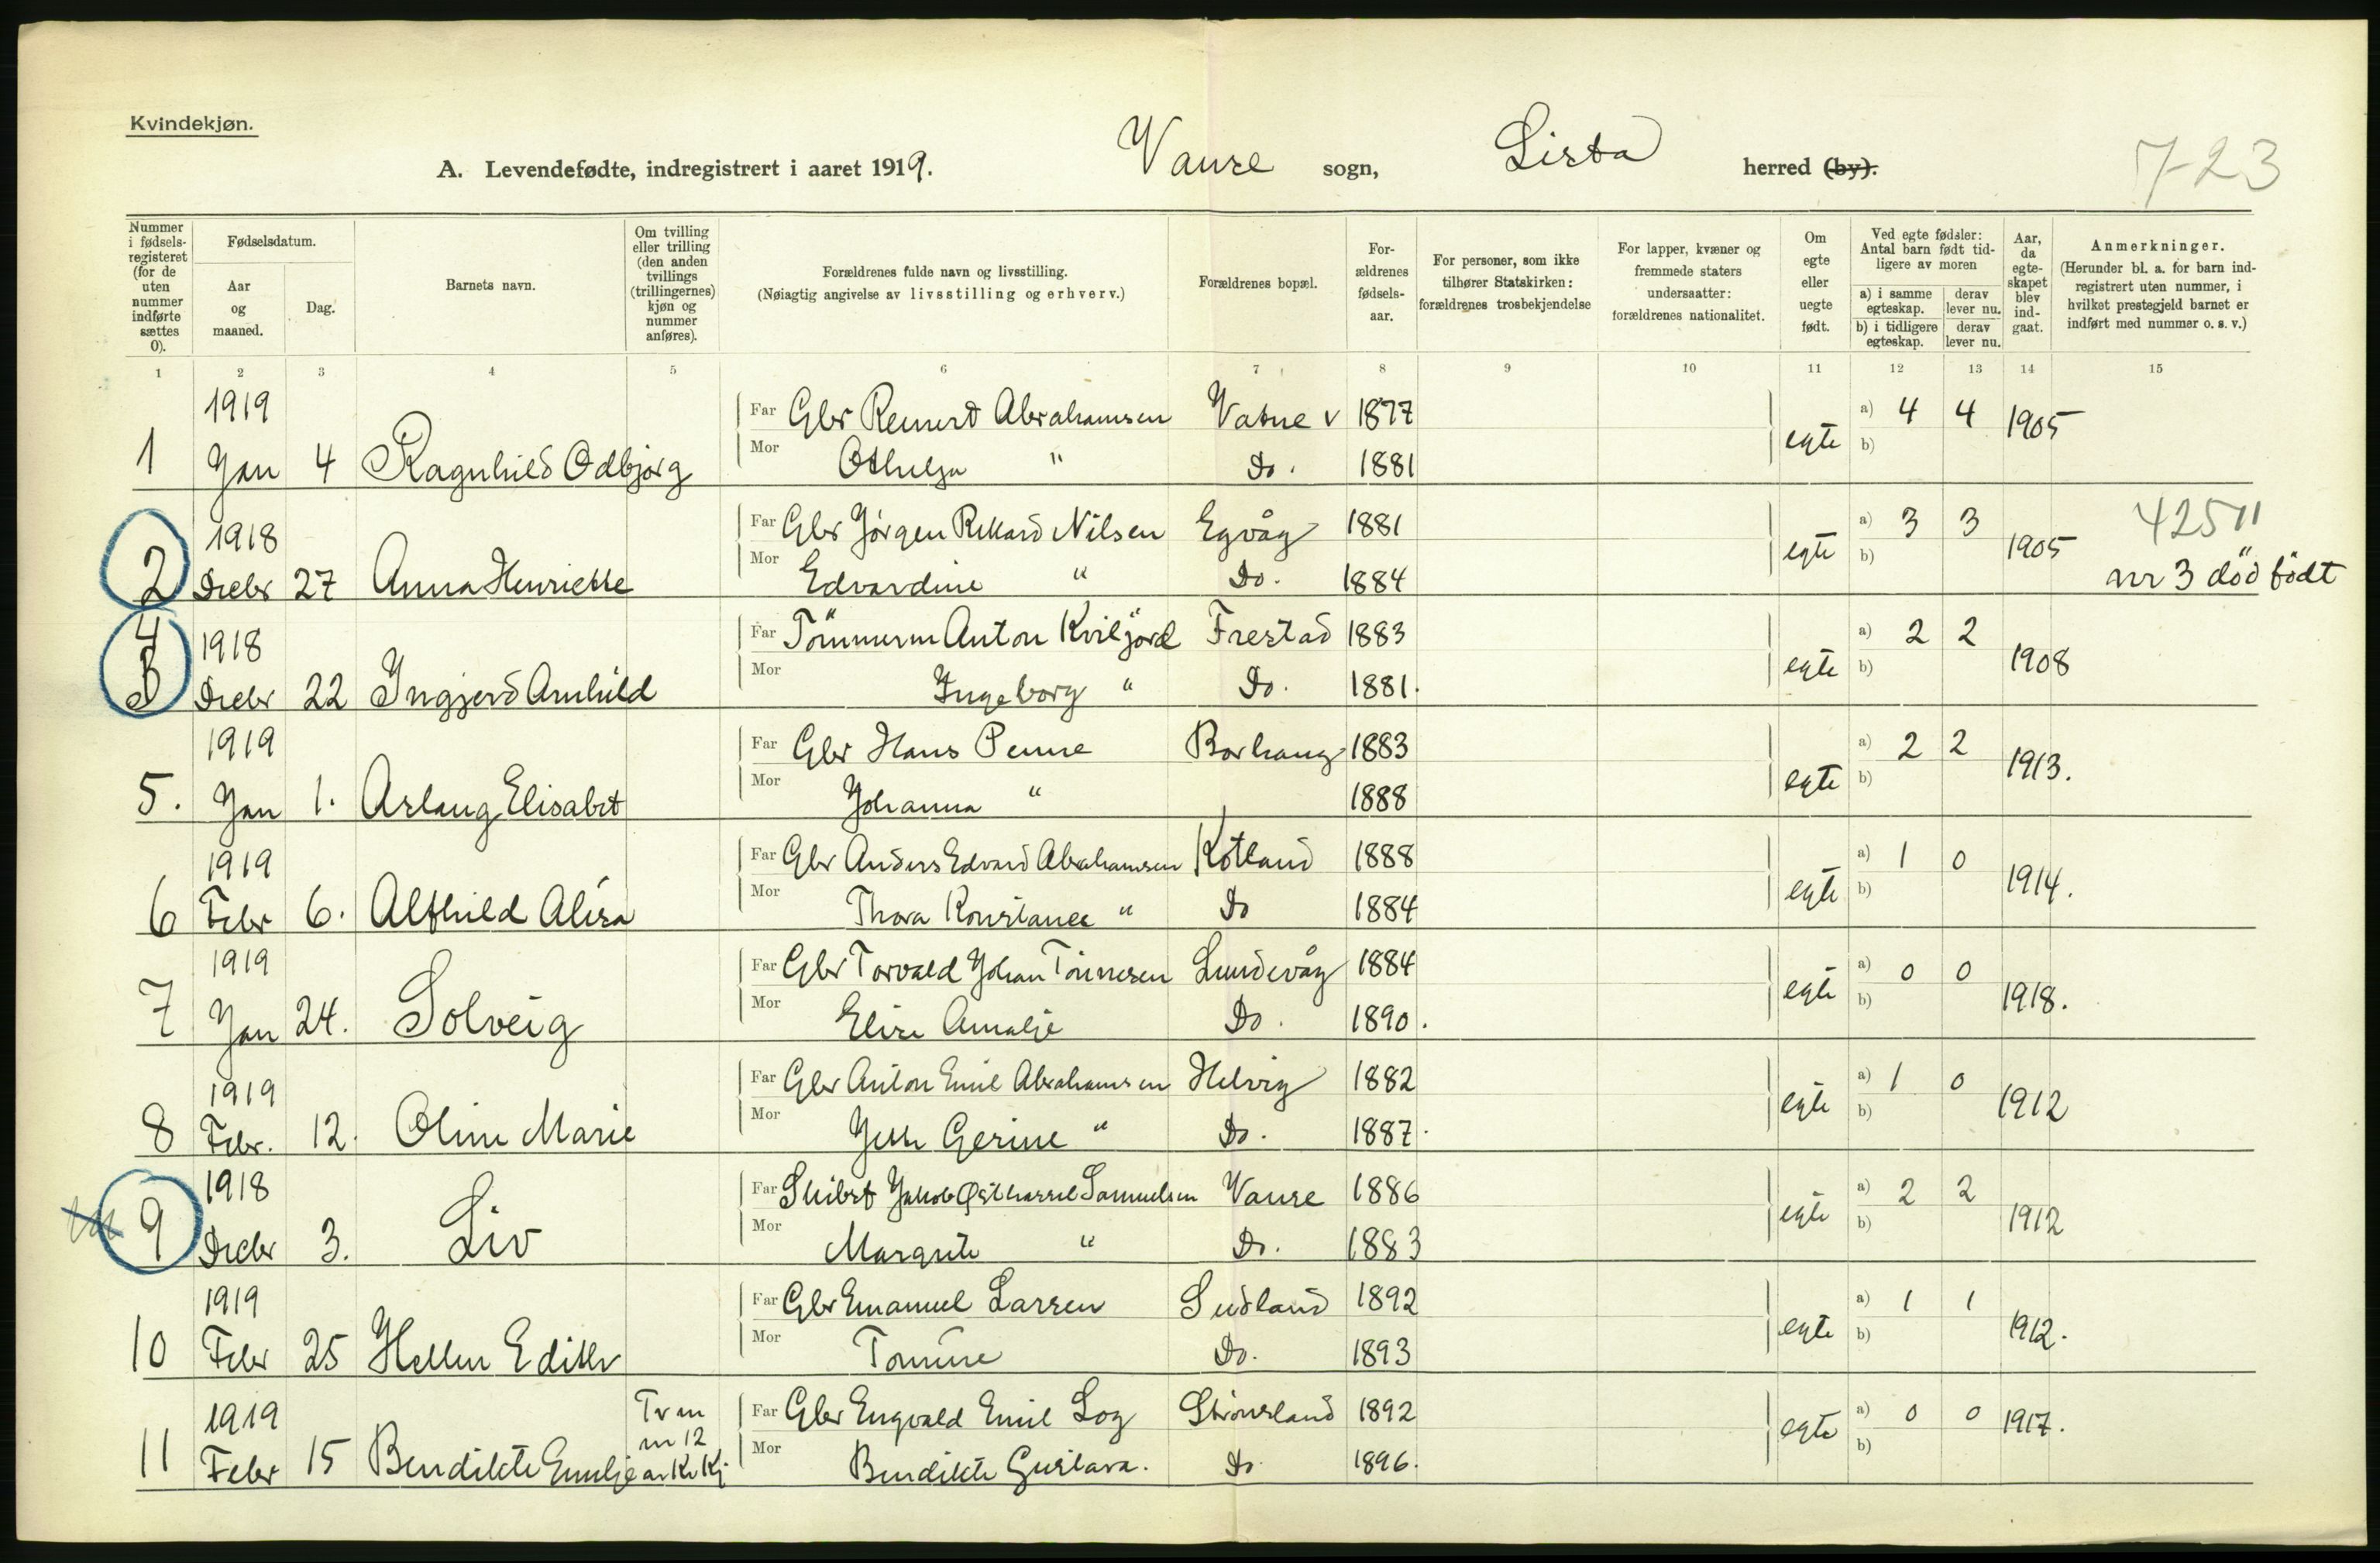 Kvindekjøn.
A. Levendefødte, indregistrert i aaret 1919. Vanse sogn, Lista herred (by).
723
Nummer i fødsels-registeret (for de uten nummer indførte sættes 0).
Fødselsdatum.
Aar og maaned.
Dag.
Barnets navn.
Om tvilling eller trilling (den anden tvillings (trillingernes) kjøn og nummer anføres).
Forældrenes fulde navn og livsstilling.
(Nøiagtig angivelse av livsstilling og erhverv.)
Forældrenes bopæl.
For-ældrenes fødsels-aar.
For personer, som ikke tilhører Statskirken: forældrenes trosbekjendelse
For lapper, kvæner og fremmede staters undersaatter: forældrenes nationalitet.
Om egte eller uegte født.
Ved egte fødsler: Antal barn født tid-ligere av moren
a) i samme egteskap.
derav lever nu.
b) i tidligere egteskap.
derav lever nu.
Aar, da egte-skapet blev ind-gaat.
Anmerkninger.
(Herunder bl. a. for barn ind-registrert uten nummer, i hvilket prestegjeld barnet er indført med nummer o. s. v.)
1 2 3 4 5 6 7 8 9 10 11 12 13 14 15
1919 Far Gbr Reinert Abrahamsen Vatne v 1877 a) 4 4 1905
1 Jan 4 Ragnhild Odbjørg Mor Othelga " Do. 1881 egte b)
1918 Far Gbr Jørgen Rikard Nilsen Egvåg 1881 a) 3 3 1905 425 11
2 Decbr 27 Anna Henriette Mor Edvardine " Do. 1884 egte b) nr 3 död födt
4 1918 Far Tömmerm Anton Kviljord Frestad 1883 a) 2 2 1908
3 Decbr 22 Ingjerd Arnhild Mor Ingeborg " Do. 1881. egte b)
1919 Far Gbr Hans Penne Borhaug 1883 a) 2 2 1913.
5. Jan 1. Aslaug Elisabet Mor Johanna " 1888 egte b)
1919 Far Gbr Anders Edvard Abrahamsen Kotland 1888 a) 1 0 1914.
6 Febr 6. Alfhild Alisa Mor Thora Konstance " Do 1884 egte b)
1919 Far Gbr Torvald Johan Tönnesen Lundevåg 1884 a) 0 0 1918.
7 Jan 24. Solveig Mor Elise Amalie Do. 1890. egte b)
1919 Far Gbr Anton Emil Abrahamsen Helvig 1882 a) 1 0 1912
8 Febr. 12. Oline Marie Mor Gerine " Do. 1887. egte b)
1918 Far Jakob Samuelsen Vanse 1886 a) 2 2 1912
9 Decbr 3. Liv Mor Margrete " Do. 1883 egte b)
1919 Far Gbr Emanuel Larsen Sudland 1892 a) 1 1 1912.
10 Febr 25 Hellen Edith Mor Tomine Do. 1893 egte b)
1919 Tv m Far Gbr Engvald Emil Log 1892 a) 0 0 1917.
nr 12
11 Febr 15 Bendikte Emilje av Kv Kj Mor Bendikte Gustava. Do. 1896. egte b)